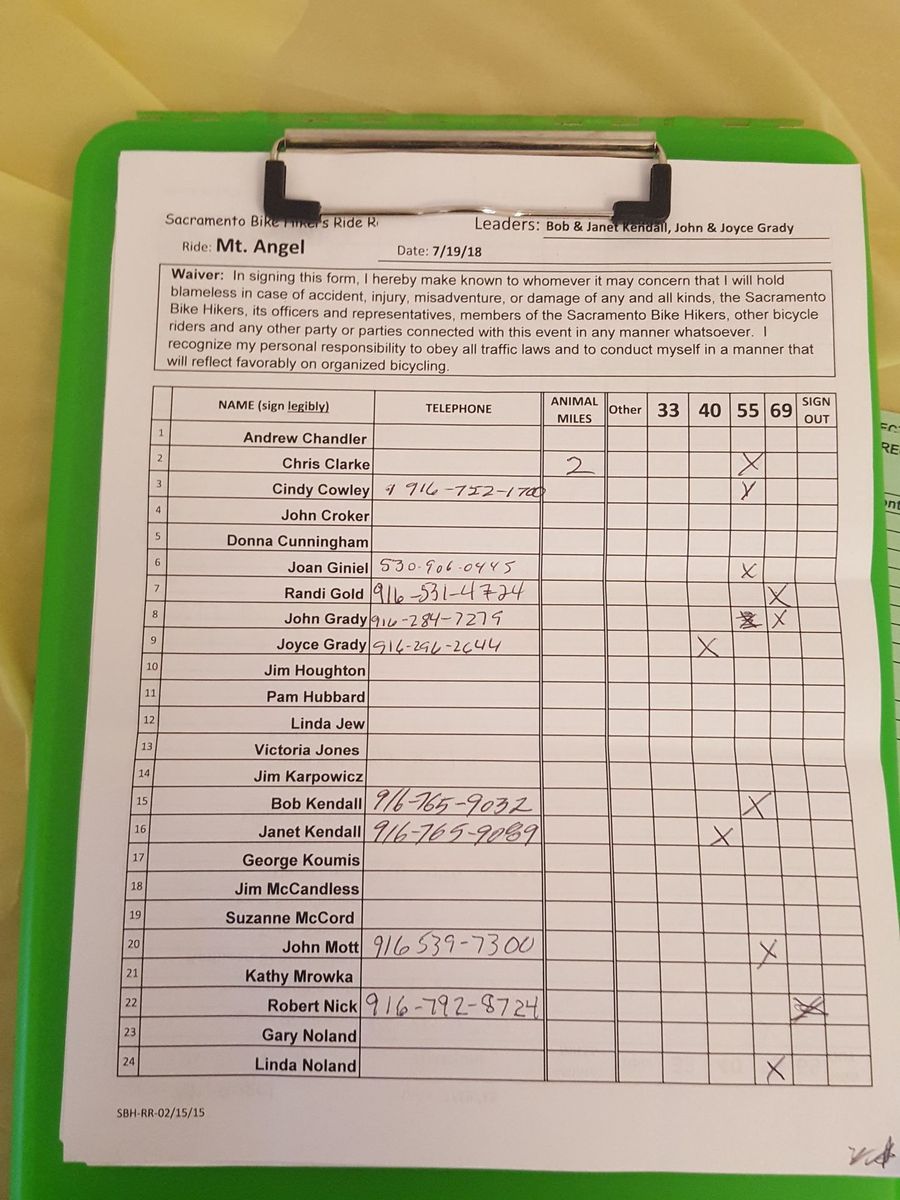 Sacramento Bike Hiker's Ride R
Leaders: Bob & Janet Kendall, John & Joyce Grady
Ride: Mt. Angel Date: 7/19/18
Waiver: In signing this form, I hereby make known to whomever it may concern that I will hold
blameless in case of accident, injury, misadventure, or damage of any and all kinds, the Sacramento
Bike Hikers, its officers and representatives, members of the Sacramento Bike Hikers, other bicycle
riders and any other party or parties connected with this event in any manner whatsoever. I
recognize my personal responsibility to obey all traffic laws and to conduct myself in a manner that
will reflect favorably on organized bicycling.
NAME (sign legibly) TELEPHONE ANIMAL MILES Other 33 40 55 69 SIGN OUT
1 Andrew Chandler
2 Chris Clarke 2 X
3 Cindy Cowley X
4 John Croker
5 Donna Cunningham
6 Joan Giniel 530-906-0445 X
7 Randi Gold 916-531-4724 X
8 John Grady 916-284-7279 X
9 Joyce Grady 916-296-2644 X
10 Jim Houghton
11 Pam Hubbard
12 Linda Jew
13 Victoria Jones
14 Jim Karpowicz
15 Bob Kendall 916-765-9032 X
16 Janet Kendall 916-765-9089 X
17 George Koumis
18 Jim McCandless
19 Suzanne McCord
20 John Mott 916 539-7300 X
21 Kathy Mrowka
22 Robert Nick 916-792-8724
23 Gary Noland
24 Linda Noland X
SBH-RR-02/15/15